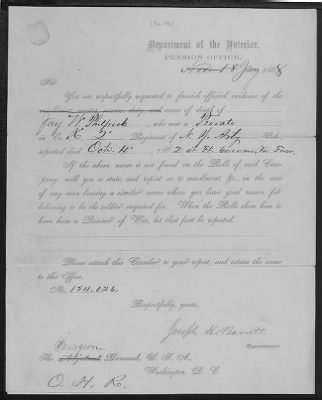 Department of the Interior,
PENSION OFFICE,
Jany 1868
Sir:
You are respectfully requested to furnish official evidence of the
cause of death of
Jay W. Philpick who was a Private
in Co. K, 2" Regiment of N. Y. Arty Vols.
reported died Oct. 4"
If the above name is not found on the Rolls of said Com-
pany, will you so state, and report as to enrollment, &c., in the case
of any man bearing a similar name whom you have good reason for
believing to be the soldier inquired for. When the Rolls show him to
have been a Prisoner of War, let that fact be reported.
Please attach this Circular to your report, and return the same
to this Office.
No. 154.026.
Respectfully, yours,
Joseph H. Barrett
Commissioner.
Surgeon
The Adjutant General, U. S. A.,
Washington, D. C.
O. H. R.